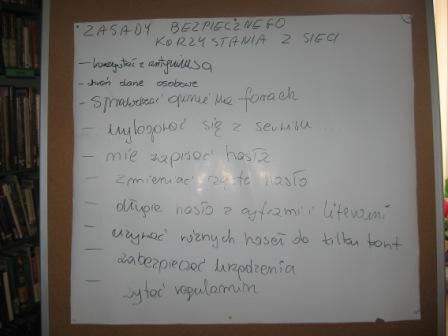 ZASADY BEZPIECZNEGO
KORZYSTANIA Z SIECI
- korzystać z antywirusa
- chroń dane osobowe
- sprawdzać opinie na forach
- wylogować się z serwisu...
- nie zapisać hasła
- zmieniać często hasło
- długie hasło z cyframi i literami
- używać różnych haseł do kilku kont
- zabezpieczać urządzenia
- czytać regulamin